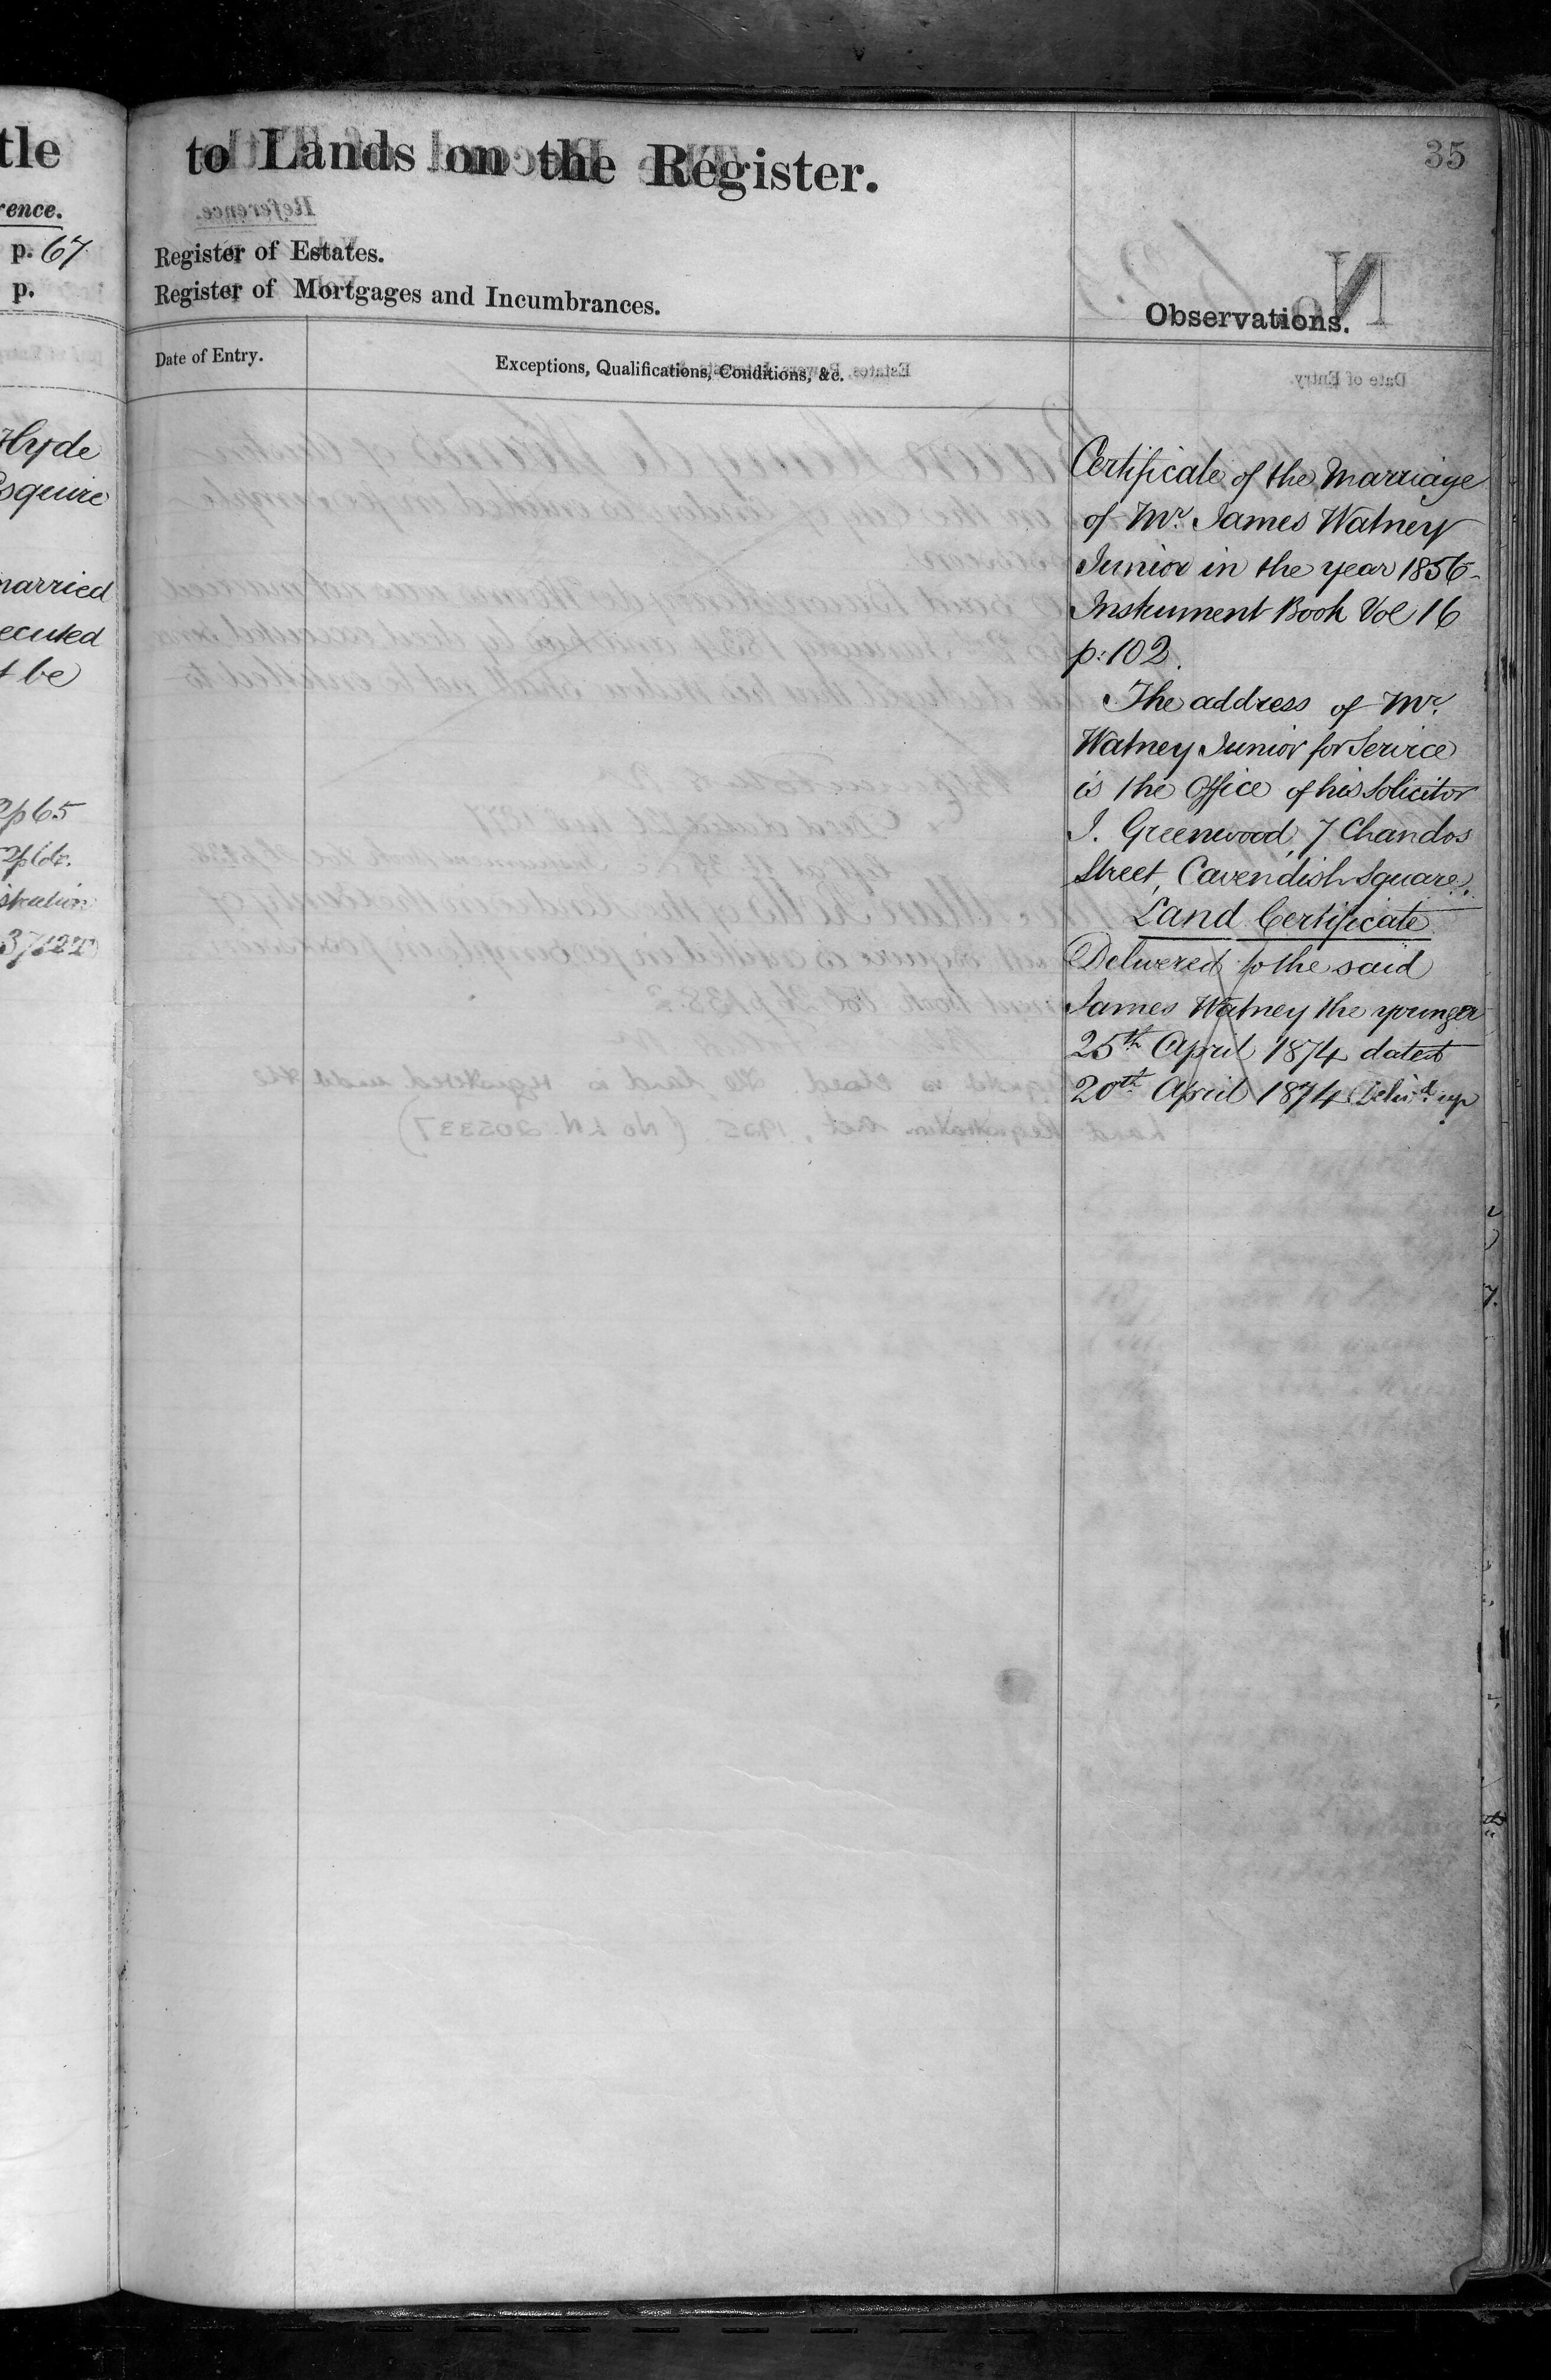 tle
rence.
p. 67.
p.
Hyde
Esquire
married
ecuted
t be
2p65
stration
to Lands on the Register.
35
Register of Estates.
Register of Mortgages and Incumbrances.
Observations.
Date of Entry.
Exceptions, Qualifications, Conditions, &c.
Certificate of the Marriage
of Mr. James Watney
Junior in the year 1856-
Instrument Book Vol 16
p: 102.
The address of Mr.
Watney Junior for Service
is the Office of his Solicitor
J. Greenwood, 7 Chandos
Street, Cavendish Square.
Land Certificate
Delivered to the said
James Watney the younger
25th April 1874 dated
20th April 1874 Deliv.d up